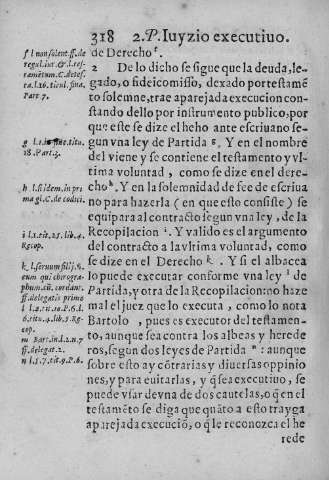 318 2.P. Iuyzio executiuo.
f l non solent. ff. de
regul. iur. & l. res-
tamẽtum. C. de tes
ta. l. 26. titul. fina.
Part. 7.
g l. 1. titu.
18. Part. 3.
h l. si idem. in pri
ma gi. C. de codici.
i l. xti. 25. lib. 4.
Rcop.
k l. seruum filij. §.
eum qui chirogra-
phum.
ff. delegatis primo
l l. 2. tu. 10. P. 6. l.
6. titu. 4. lib. 5. Re-
cop.
m Bart. in l. 2. n. 7
ff. delegat. 2.
n l. 5. 7. tit. 9. P. 6.
de Derecho f.
2 De lo dicho se sigue que la deuda, le-
gado, o fideicomisso, dexado por testamẽ
to solemne, trae aparejada execucion con-
stando dello por instrumento publico, por
que este se dize el heho ante escriuano se-
gun vna ley de Partida g. Y en el nombre
del viene y se contiene el testamento y vl-
tima voluntad, como se dize en el dere-
cho h. Y en la solemnidad de fee de escriua
no para hazerla (en que esto consiste) se
equipara al contracto segun vna ley, de la
Recopilacion i. Y valido es el argumento
del contracto a la vltima voluntad, como
se dize en el Derecho k. Y si el albacea
lo puede executar conforme vna ley l de
Partida, y otra de la Recopilacion: no haze
mal el juez que lo executa, como lo nota
Bartolo , pues es executor del testamẽn-
to, aunque sea contra los albeas y herede
ros, segun dos leyes de Partida n : aunque
sobre esto ay cõtrarias y diuersas oppinio
nes, y para euitarlas, y q̃ sea executiuo, se
puede vsar devna de dos cautelas, o q̃ en el
testamẽto se diga que quãto a esto trayga
aparejada execuciõ, o q̃ le reconozca el he
rede